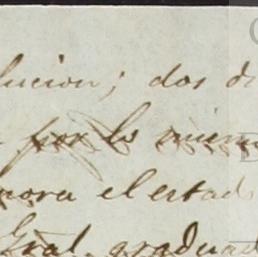 lucion; dos di
por lo mism
nora el estad
Gral. graduad